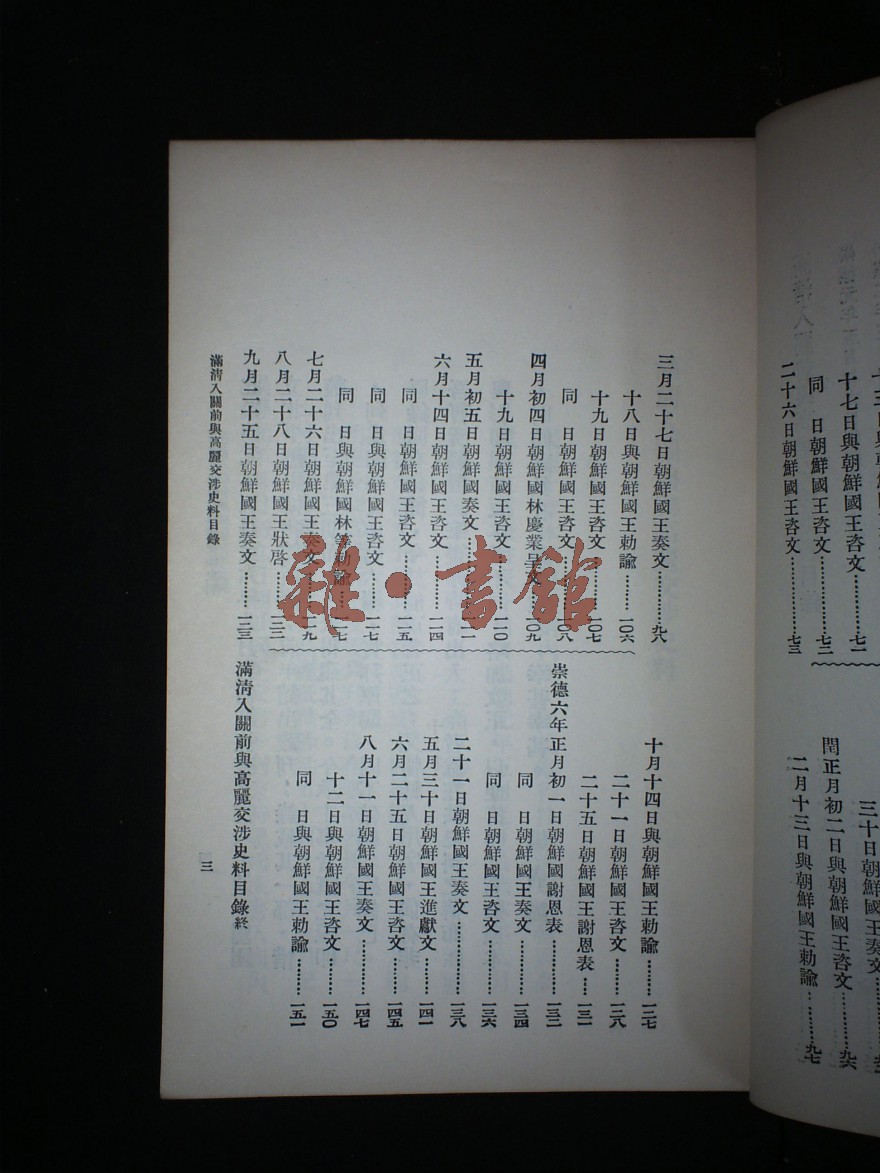 十七日與朝鮮國王咨文………七一
同　日朝鮮國王咨文………七二
二十六日朝鮮國王咨文………七三
三十日朝鮮國王奏文………
閏正月初二日與朝鮮國王咨文………九六
二月十三日與朝鮮國王勅諭………九七
三月二十七日朝鮮國王奏文………九八
十八日與朝鮮國王勅諭………一〇六
十九日朝鮮國王咨文………一〇七
同　日朝鮮國王咨文………一〇八
四月初四日朝鮮國林慶業呈文………一〇九
十九日朝鮮國王咨文………一一〇
五月初五日朝鮮國奏文………一一一
六月十四日朝鮮國王咨文………一一四
同　日朝鮮國王咨文………一一五
同　日與朝鮮國王咨文………一一七
同　日與朝鮮國林等勅諭………一一七
七月二十六日朝鮮國王奏文………一一九
八月二十八日朝鮮國王狀啓………一二二
九月二十五日朝鮮國王奏文………一二三
十月十四日與朝鮮國王勅諭………一二七
二十一日朝鮮國王咨文………一二八
二十五日朝鮮國王謝恩表………一三一
崇德六年正月初一日朝鮮國謝恩表………一三二
同　日朝鮮國王奏文………一三四
同　日朝鮮國王咨文………一三六
二十一日朝鮮國王奏文………一三八
五月三十日朝鮮國王進獻文………一四一
六月二十五日朝鮮國王咨文………一四五
八月十一日朝鮮國王奏文………一四七
十二日與朝鮮國王咨文………一五〇
同　日與朝鮮國王勅諭………一五一
滿淸入關前與高麗交涉史料目錄終
滿淸入關前與高麗交涉史料目錄
三
雜·書館